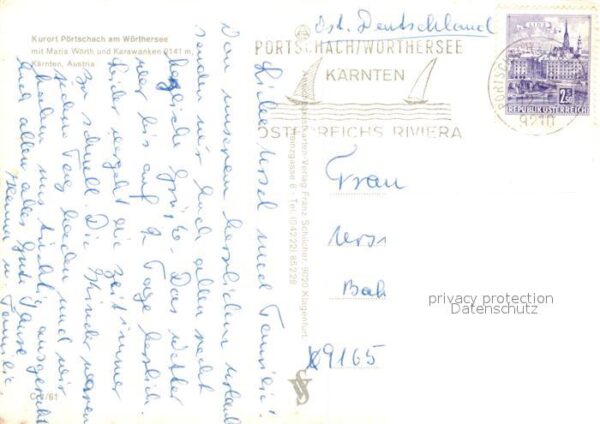 Kurort Pörtschach am Wörthersee
mit Maria Wörth und Karawanken 2141 m,
Kärnten, Austria
Liebe Ursel und Familie!
Von unserem herrlichen Urlaub
senden wir Euch allen recht
herzliche Grüße. Das Wetter
war bis auf 2 Tage herrlich.
Leider vergeht die Zeit immer
zu schnell. Die Kinder waren
jeden Tag baden und wir
haben uns richtig ausgeruht.
Euch allen alles Gute
u. Familie
C 1/61
Ansichtskarten-Verlag Franz Schilcher, 9020 Klagenfurt
gasse 6 · Tel. (04222) 85 2 28
Ost. Deutschland
PÖRTSCHACH/WÖRTHERSEE
KÄRNTEN
ÖSTERREICHS RIVIERA
LINZ
2.50
REPUBLIK ÖSTERREICH
PÖRTSCHACH
9210
Frau
Bah
X9165
privacy protection
Datenschutz